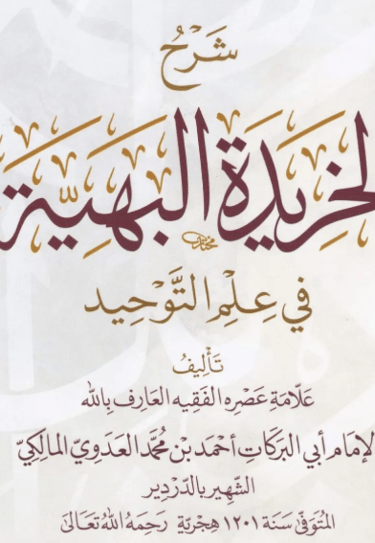 شَرْحُ
الخَرِيدَةِ البَهِيَّةِ
فِي عِلْمِ التَّوْحِيدِ
تَأْلِيفُ
عَلَّامَةِ عَصْرِهِ الفَقِيهِ العَارِفِ بِاللهِ
الإمَامِ أبي البَرَكَاتِ أحْمَد بْن مُحَمَّد العَدَوِيّ المَالِكِيّ
الشَّهِيرِ بالدَّرْدِير
المُتَوَفَّى سَنَة ١٢٠١ هِجْرِيَّة رَحِمَهُ اللهُ تَعَالَى